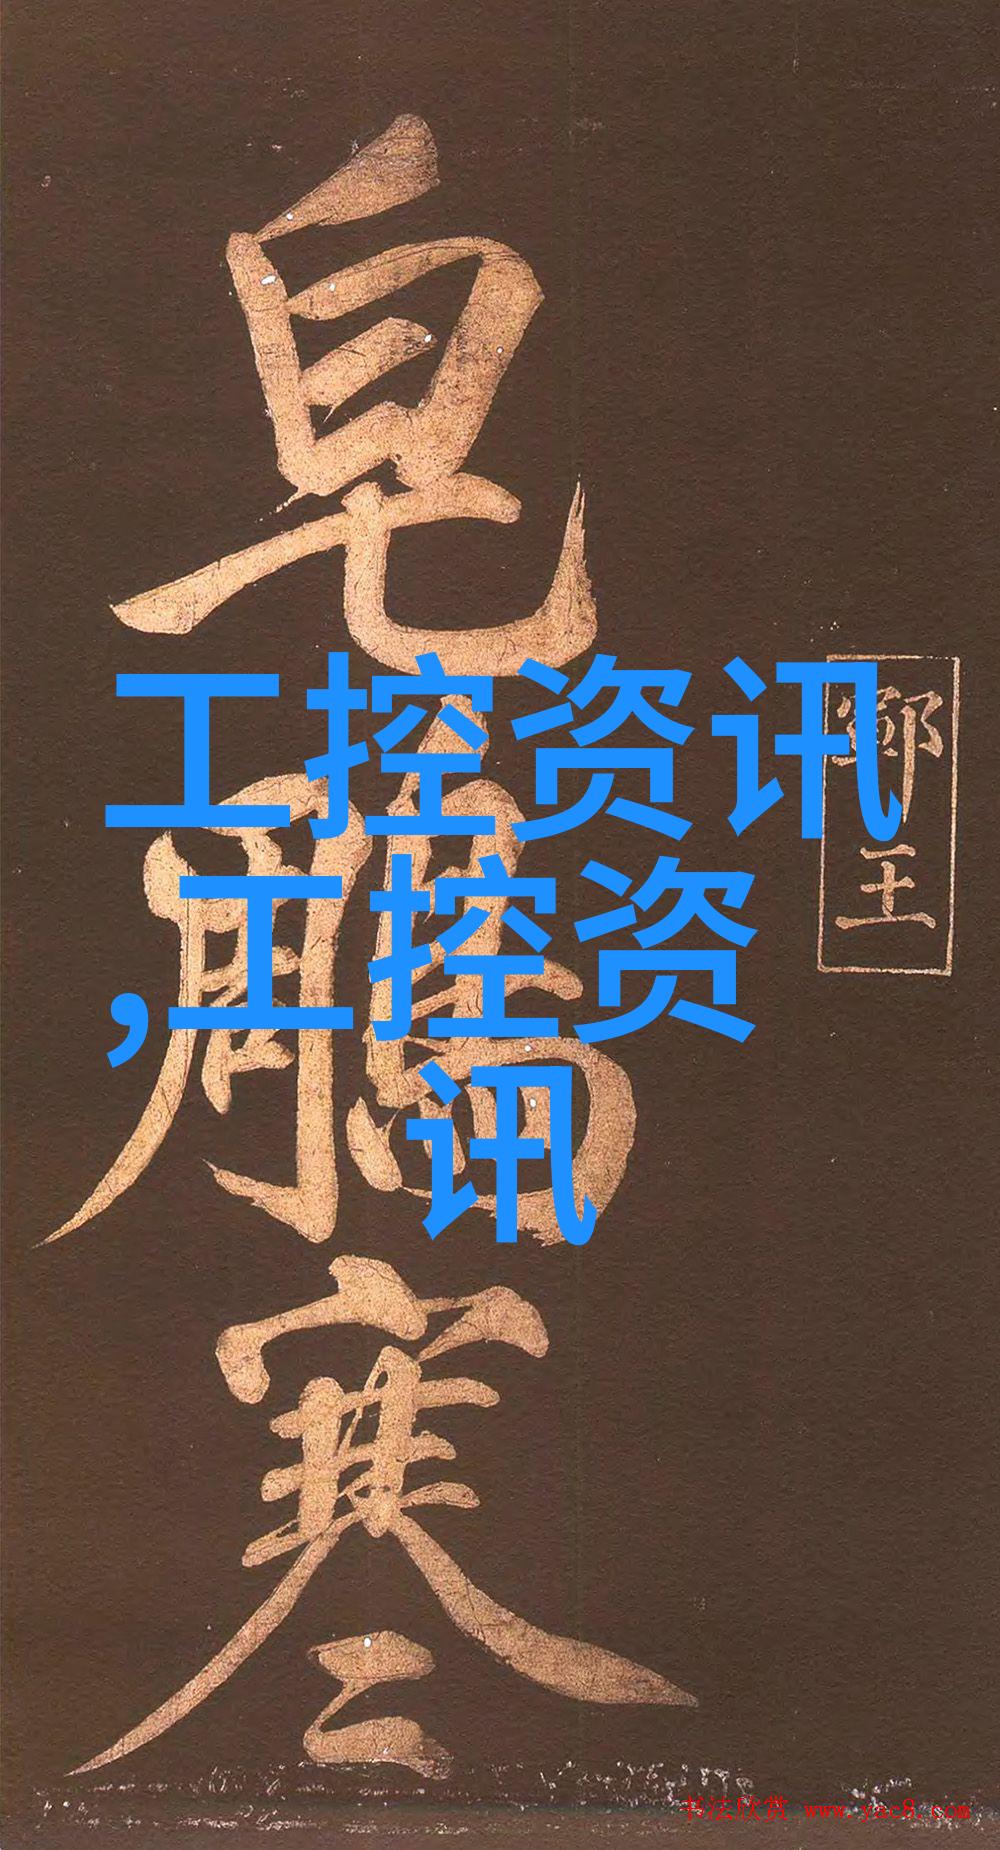 皂鵰寒
王
工控资讯
,工控资
讯
书法欣赏 www.yac8.com